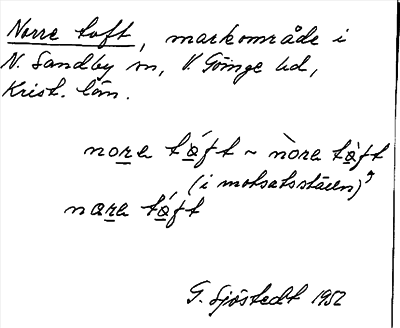 Norre toft, markområde i
N. Sandby sn, V. Göinge hd,
Krist. län.
nora táft ~ nòra tàft
(i motsatsställn)
nara táft
G. Sjöstedt 1952